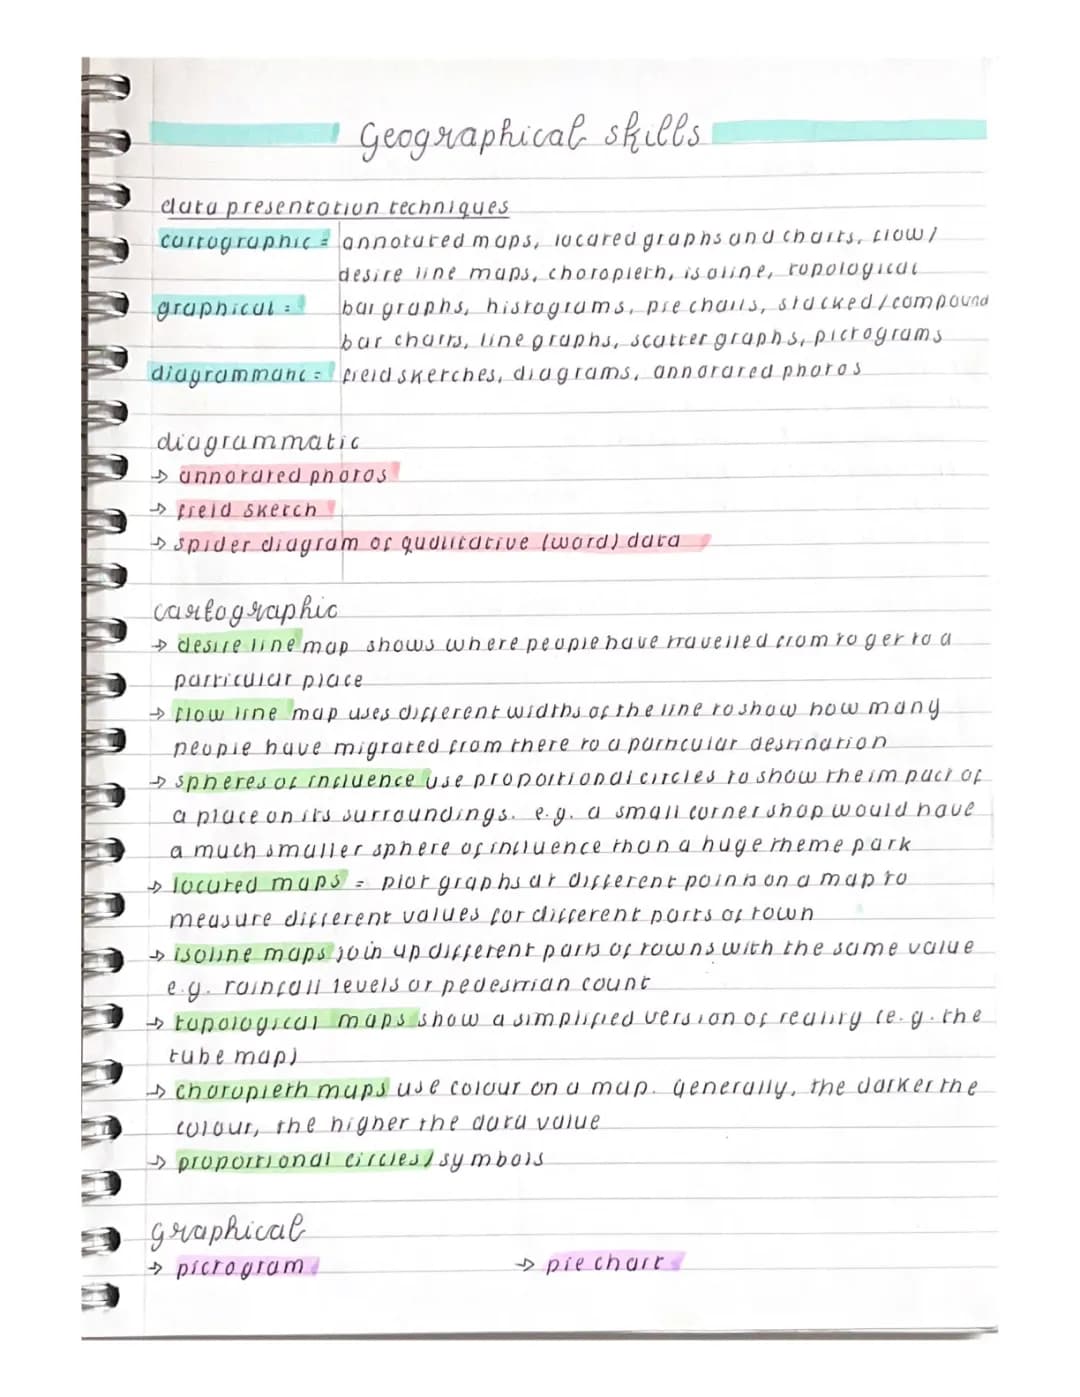 Geographical skills
data presentation techniques
cartographic = annotated maps, located graphs and charts, flow/
desire line maps, choropleth, isoline, topological
graphical = bar graphs, histograms, pie charts, stacked/compound
bar charts, line graphs, scatter graphs, pictograms
diagrammatic = field sketches, diagrams, annotated photos
diagrammatic
→ annotated photos
→ field sketch
→ spider diagram of qualitative (word) data
cartographic
→ desire line map shows where people have travelled from to get to a
particular place
→ flow line map uses different widths of the line to show how many
people have migrated from there to a particular destination
→ spheres of influence use proportional circles to show the impact of
a place on its surroundings. e.g. a small corner shop would have
a much smaller sphere of influence than a huge theme park
→ located maps = plot graphs at different points on a map to
measure different values for different parts of town
→ isoline maps join up different parts of towns with the same value
e.g. rainfall levels or pedestrian count
→ topological maps show a simplified version of reality (e.g. the
tube map)
→ choropleth maps use colour on a map. generally, the darker the
colour, the higher the data value
→ proportional circles/symbols
graphical
→ pictogram → pie chart